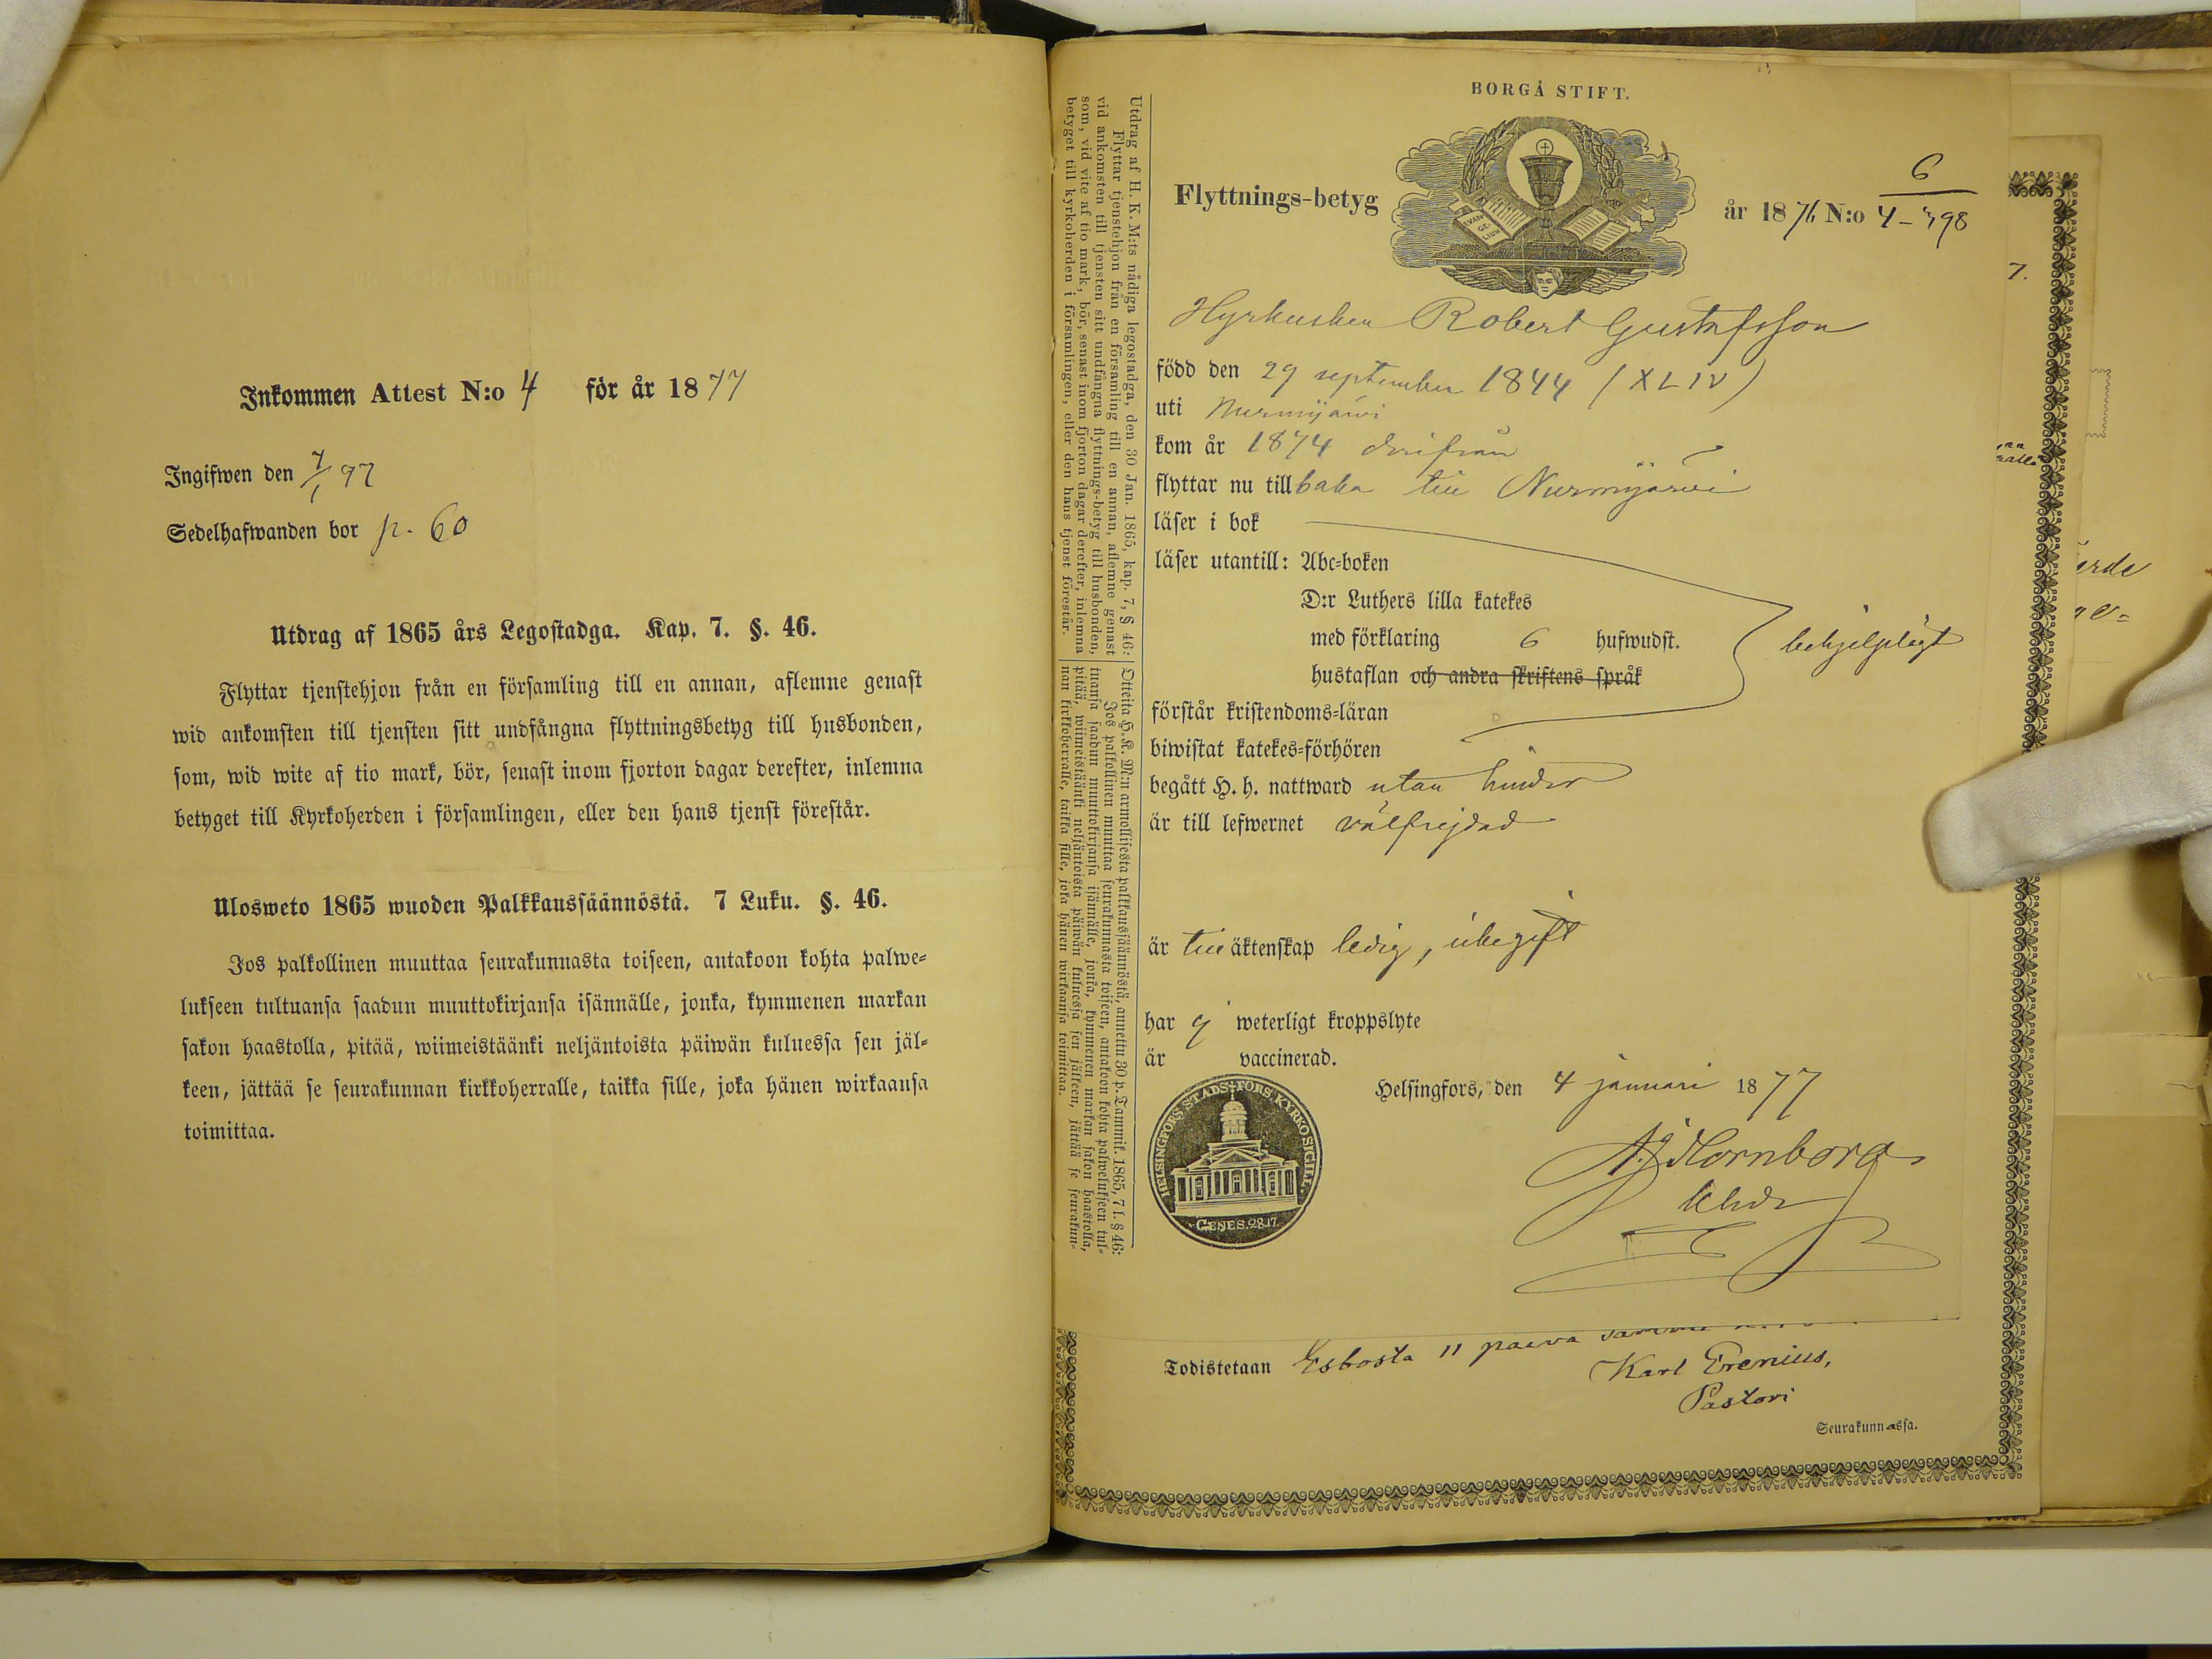 Inkommen Attest N:o 4 för år 1877
Ingifwen den 7/1 77
Sedelhafwanden bor p. 60
Utdrag af 1865 års Legostadga. Kap. 7. §. 46.
Flyttar tjenstehjon från en församling till en annan, aflemne genast
wid ankomsten till tjensten sitt undfångna flyttningsbetyg till husbonden,
som, wid wite af tio mark, bör, senast inom fjorton dagar derefter, inlemna
betyget till Kyrkoherden i församlingen, eller den hans tjenst förestår.
Ulosweto 1865 wuoden Palkkaussäännöstä. 7 Luku. §. 46.
Jos palkollinen muuttaa seurakunnasta toiseen, antakoon kohta palwe-
lukseen tultuansa saadun muuttokirjansa isännälle, jonka, kymmenen markan
sakon haastolla, pitää, wiimeistäänki neljäntoista päiwän kuluessa sen jäl-
keen, jättää se seurakunnan kirkkoherralle, taikka sille, joka hänen wirkaansa
toimittaa.
Utdrag af H. K. M:ts nådiga legostadga, den 30 Jan. 1865, kap. 7, § 46:
Flyttar tjenstehjon från en församling till en annan, aflemne genast
vid ankomsten till tjensten sitt undfångna flyttnings-betyg till husbonden,
som, vid vite af tio mark, bör, senast inom fjorton dagar derefter, inlemna
betyget till kyrkoherden i församlingen, eller den hans tjenst förestår.
Otteita H. K. M:n armollisesta palkkaussäännöstä, annettu 30 p. Tammik. 1865, 7 l. § 46:
Jos palkollinen muuttaa seurakunnasta toiseen, antakoon kohta palwelukseen tul-
tuansa saadun muuttokirjansa isännälle, jonka, kymmenen markan sakon haastolla,
pitää, wiimeistäänki neljäntoista päiwän kuluessa sen jälkeen, jättää se seurakun-
nan kirkkoherralle, taikka sille, joka hänen wirkaansa toimittaa.
BORGÅ STIFT.
EVAN-
GE-
LIUM
Flyttnings-betyg år 1876 N:o 6
4-798
Hyrkusken Robert Gustafsson
född den 29 september 1844 (XLIV)
uti Nurmijärvi
kom år 1874 derifrån
flyttar nu tillbaka till Nurmijärvi
läser i bok
läser utantill: Abc-boken
D:r Luthers lilla katekes
med förklaring 6 hufwudst. behjelpligt
hustaflan och andra skriftens språk
förstår kristendoms-läran
biwistat katekes-förhören
begått H. h. nattward utan hinder
är till lefwernet välfrejdad
är till äktenskap ledig, obegift
har ej weterligt kroppslyte
är vaccinerad.
Helsingfors, den 4 januari 1877
Hornborg
HELSINGFORS STADS FÖRS. KYRKO SIGILL.
GENES. 28.17.
Todistetaan Esbosta 11 päivä
Karl Erenius,
Pastori
Seurakunnassa.